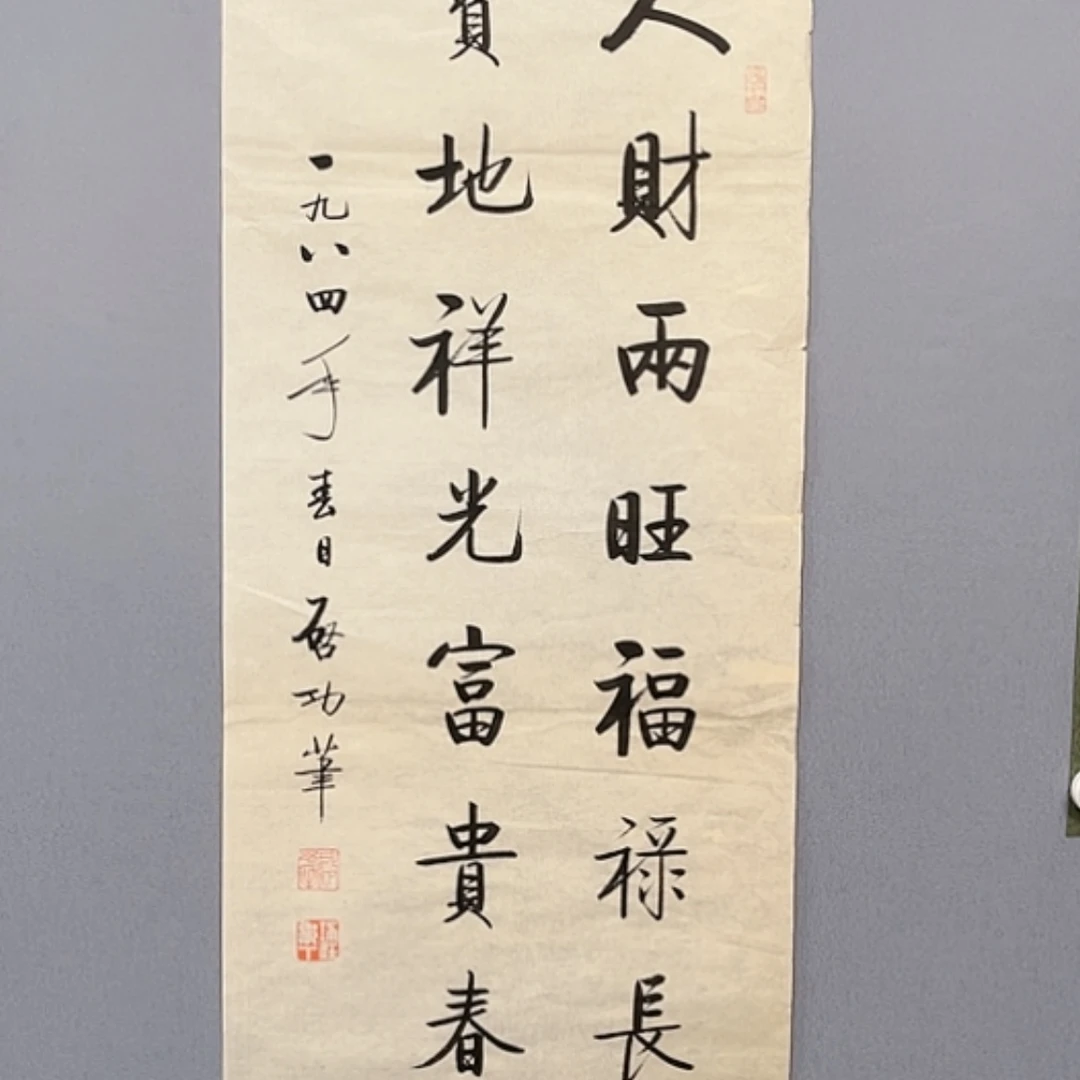 人財兩旺福禄長
地祥光富貴春
一九八四年春日啓功筆